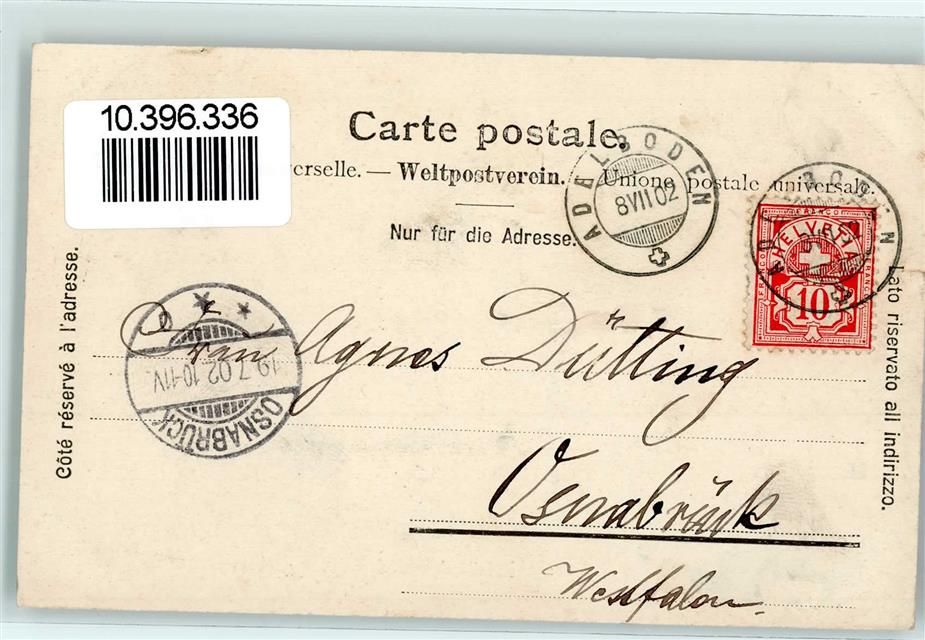 10.396.336
Carte postale.
erselle. — Weltpostverein. — Unione postale universale.
Nur für die Adresse.
Côté réservé à l'adresse.
Lato riservato all indirizzo.
ADELBODEN
8 VII 02
ADELBODEN
FRANCO
HELVETIA
10
OSNABRÜCK
10-11V.
Frau Agnes Dütting
Osnabrück
Westfalen.